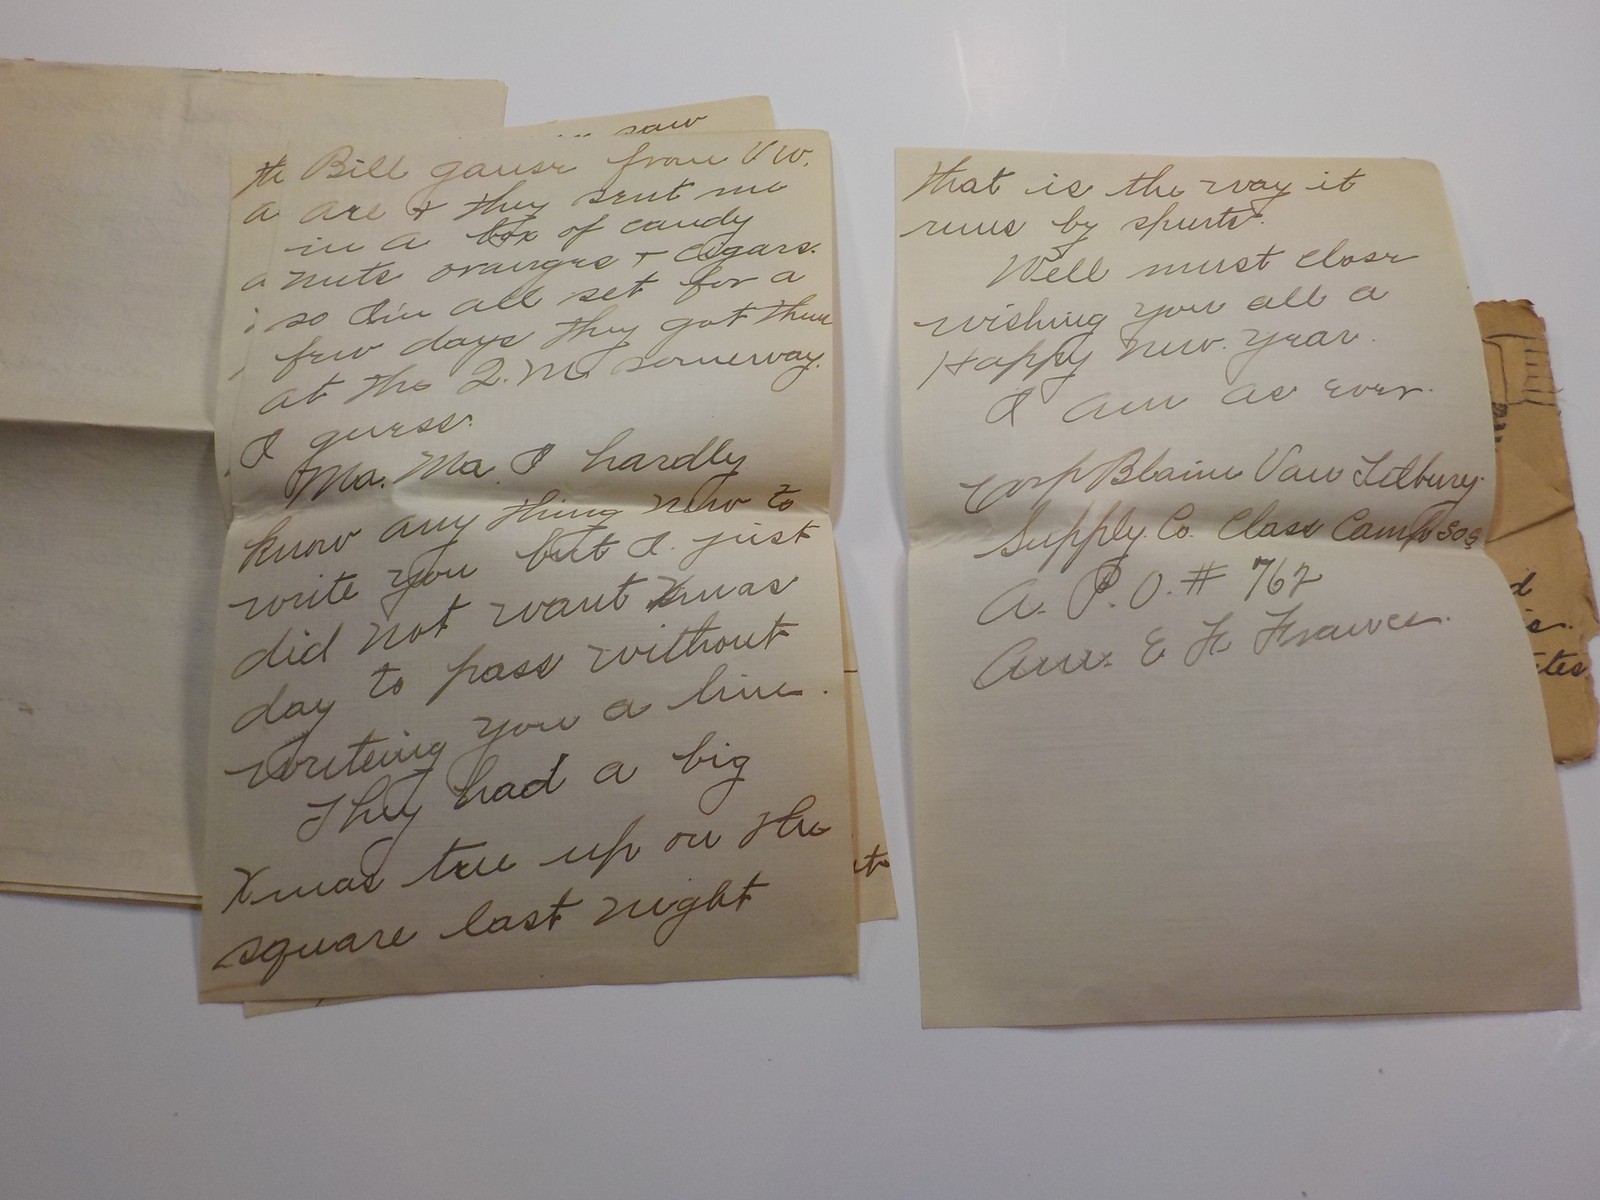 saw
th Bill gause from V W.
a are + they sent me
in a box of candy
a nuts oranges + Cigars.
so I'm all set for a
few days they got them
at the Q. M. someway.
I guess.
Ma. Ma. I hardly
know any thing new to
write you but I just
did not want Xmas
day to pass without
writeing you a line.
They had a big
Xmas tree up on the
square last night
that is the way it
runs by spurts.
Well must close
wishing you all a
Happy New. Year.
I am as ever.
Corp Blaine Van Tilbury.
Supply. Co. Class Camp SOS
A. P. O. # 762
Am. E F. France.